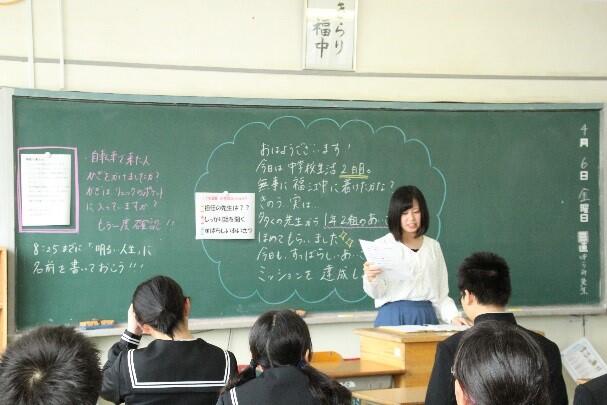 きらり
福中
・自転車で来た人
かぎをかけましたか?
かぎは、リュックのポケット
に入っていますか?
もう一度確認!!
8:25までに「明るい人生」に
名前を書いておこう!!
おはようございます!
今日は中学校生活2日目。
無事に福江中に着けたかな?
きのう、実は…
多くの先生から1年2組のあ
ほめてもら
ました
今日も、すっばらしいあ
ミッションを達成し
担任の先生は??
しっかり話を聞く
すばらしいあいさつ
4月6日金曜日